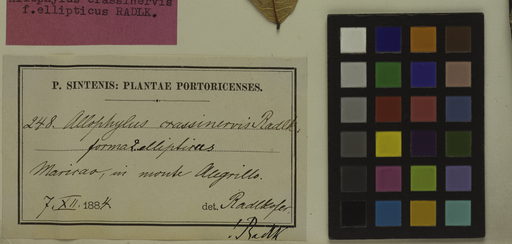 Allophylus crassinervis
f.ellipticus RADLK.
P. SINTENIS: PLANTAE PORTORICENSES.
248. Allophylus crassinervis Radlk.,
forma 2 ellipticus
Maricao, in monte Alegrillo.
7. XII. 1884 det. Radlkofer.
! Radlk